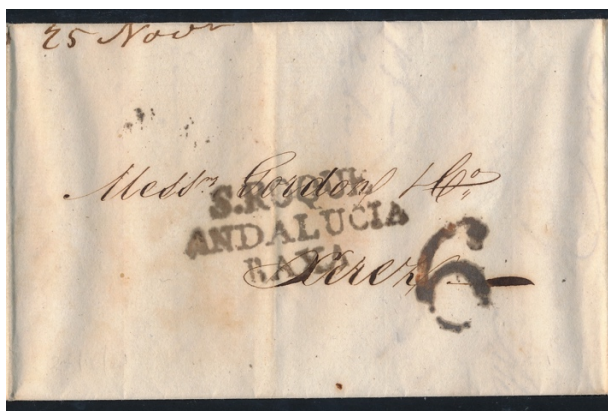 25 Novr
Messrs Gordon & Co
S. ROQUE
ANDALUCIA
BAXA
Xerez
6